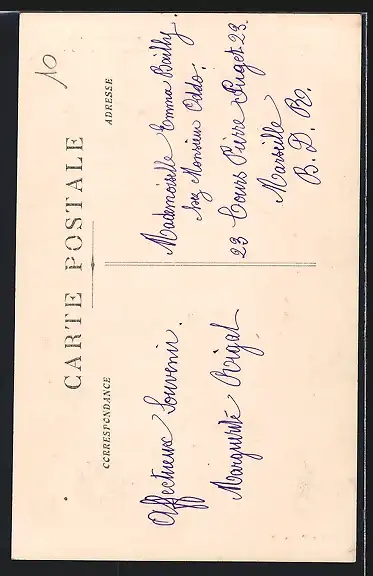 10
CARTE POSTALE
CORRESPONDANCE
ADRESSE
Affectueux Souvenir.
Marguerite Rigal
Mademoiselle Emma Bailly.
chez Monsieur Oddo.
23 Cours Pierre Puget 23.
Marseille
B. D. R.